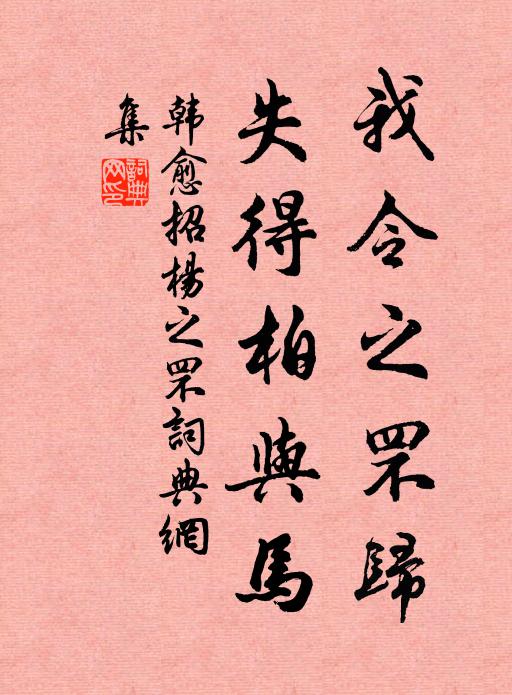 我令之罘歸
失得柏與馬
韩愈招楊之罘詞典網
集
詞典
网印